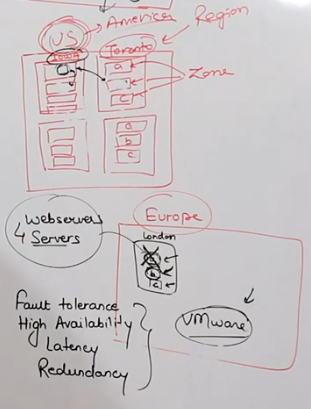 America
US
Region
Toronto
a
c
Zone
a
b
c
Webservers
4 Servers
Europe
London
b
c
VMware
Fault tolerance
High Availability
Latency
Redundancy